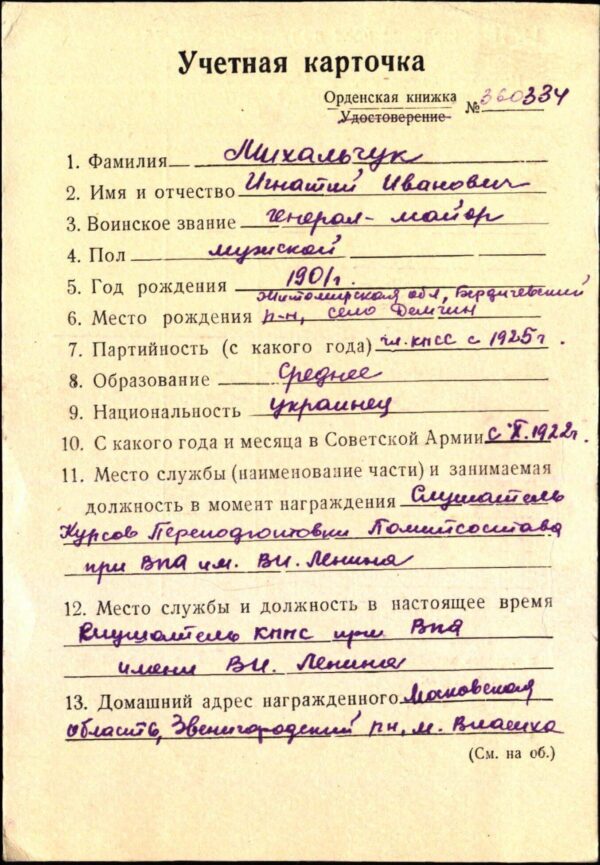 Учетная карточка
Орденская книжка
Удостоверение № 360334
1. Фамилия Михальчук
2. Имя и отчество Игнатий Иванович
3. Воинское звание генерал-майор
4. Пол мужской
5. Год рождения 1901г.
Житомирская обл, Бердичевский
6. Место рождения р-н, село Демчин
7. Партийность (с какого года) чл. КПСС с 1925г.
8. Образование Среднее
9. Национальность украинец
10. С какого года и месяца в Советской Армии с X. 1922г.
11. Место службы (наименование части) и занимаемая
должность в момент награждения Слушатель
Курсов Переподготовки Политсостава
при ВПА им. В.И. Ленина
12. Место службы и должность в настоящее время
Слушатель КППС при ВПА
имени В.И. Ленина
13. Домашний адрес награжденного Московская
область, Звенигородский р-н, м. Власиха
(См. на об.)